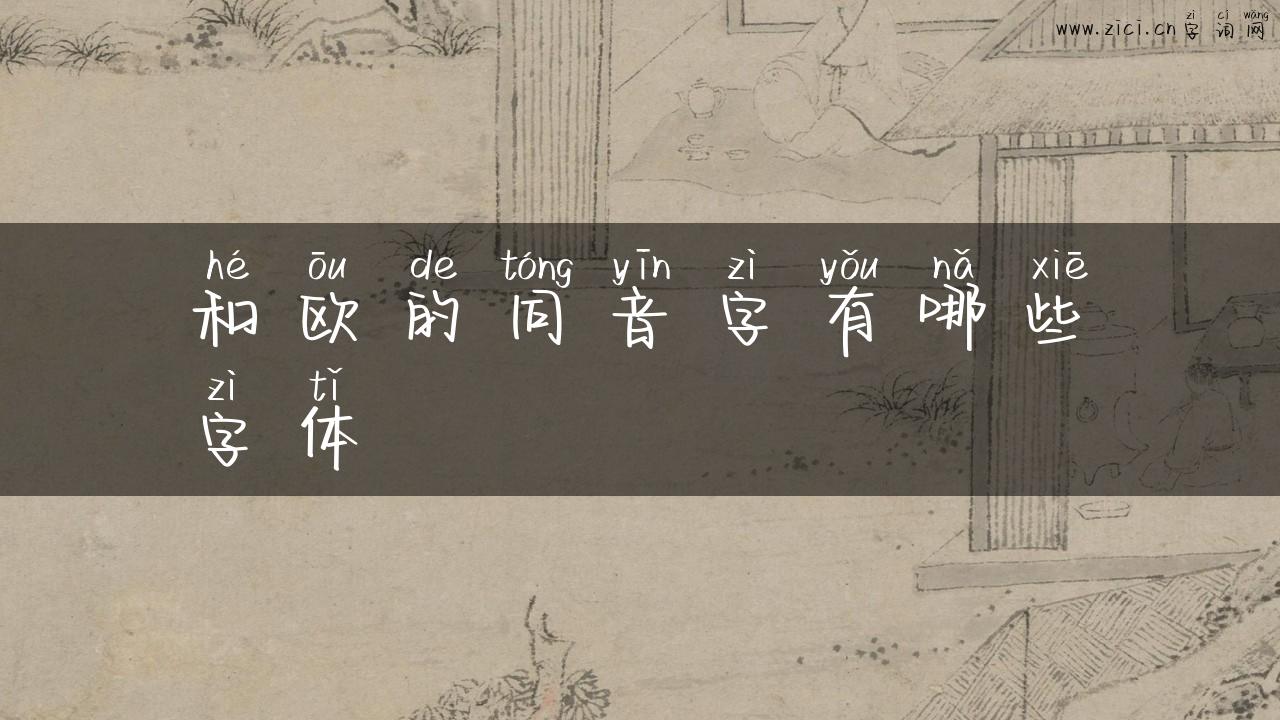 zì cí wǎng
www.zici.cn 字词网
hé ōu de tóng yīn zì yǒu nǎ xiē
和欧的同音字有哪些
zì tǐ
字体